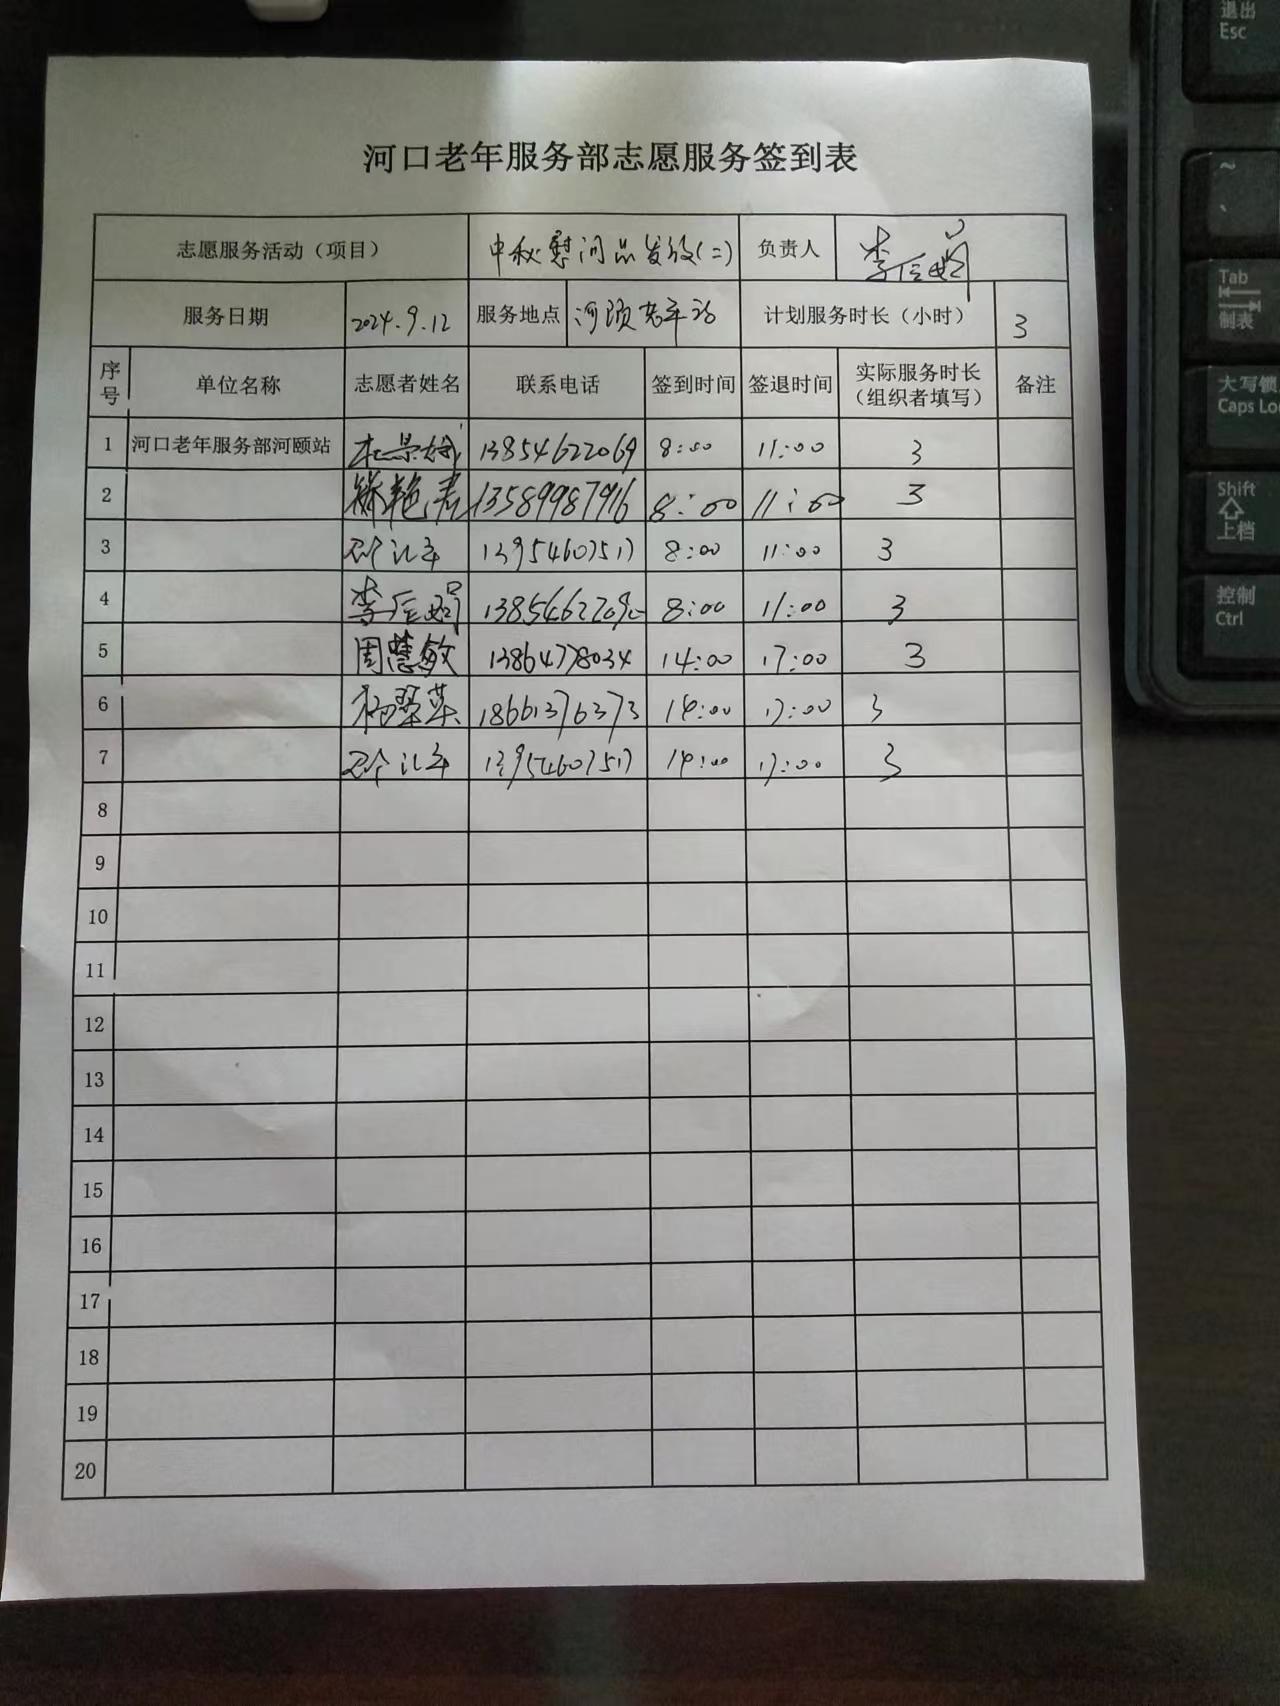 退出
Esc
~
、
Tab
制表
大写锁
Caps Loc
Shift
上档
控制
Ctrl
河口老年服务部志愿服务签到表
志愿服务活动（项目） 中秋慰问品发放(二) 负责人 李
服务日期 2024.9.12 服务地点 河颐老年站 计划服务时长（小时） 3
序号 单位名称 志愿者姓名 联系电话 签到时间 签退时间 实际服务时长（组织者填写） 备注
1 河口老年服务部河颐站 13854622069 8:00 11:00 3
2 13589987916 8:00 11:00 3
3 13954607517 8:00 11:00 3
4 李 8:00 11:00 3
5 周慧敏 13864778034 14:00 17:00 3
6 杨翠英 18661376373 14:00 17:00 3
7 13954607517 14:00 17:00 3
8
9
10
11
12
13
14
15
16
17
18
19
20